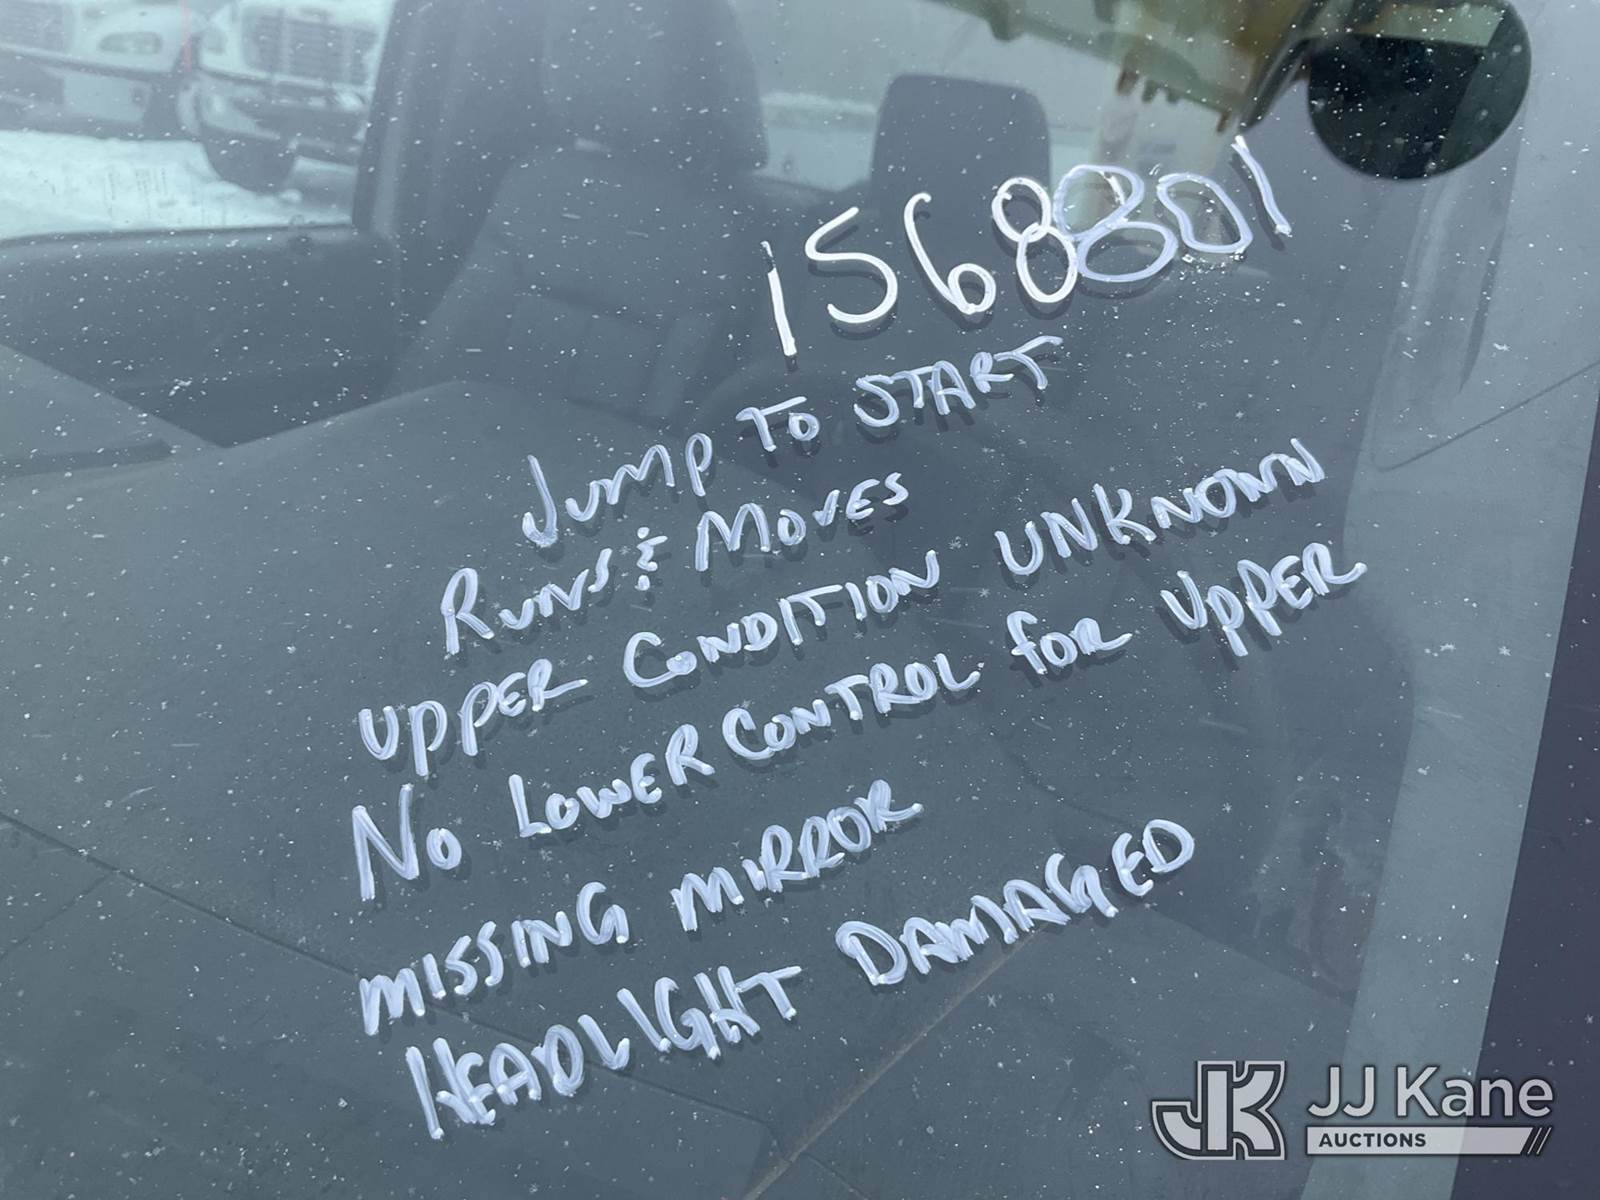 1568801
JUMP TO START
RUNS & MOVES
UPPER CONDITION UNKNOWN
NO LOWER CONTROL FOR UPPER
MISSING MIRROR
HEADLIGHT DAMAGED
JK JJ Kane
AUCTIONS